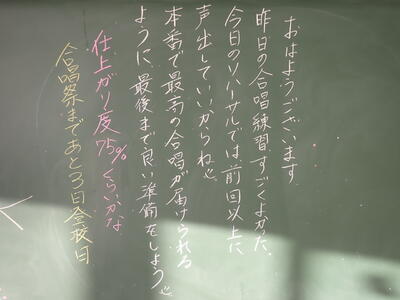 おはようございます
昨日の合唱練習すごくよかった。
今日のリハーサルでは、前回以上に
声出していいからね
本番で最高の合唱が届けられる
ように、最後まで良い準備をしよう
仕上がり度75%くらいかな
合唱祭まであと3日登校日